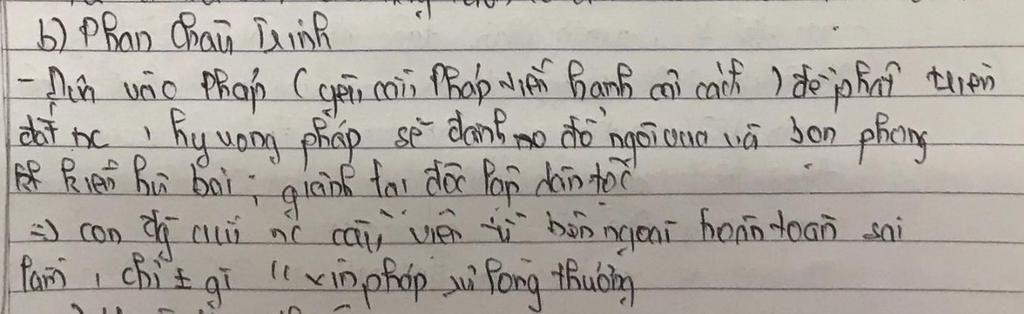 b) Phan Châu Trinh
- Dựa vào Pháp (yêu cầu Pháp tiến hành cải cách) để phát triển
đất nc, hy vọng pháp sẽ đánh đổ ngôi vua và bọn phong
kiến hủ bại, giành lại độc lập dân tộc
=> con đg cứu nc cầu viện từ bên ngoài hoàn toàn sai
lầm, chỉ ± gì "xin pháp rủ lòng thương